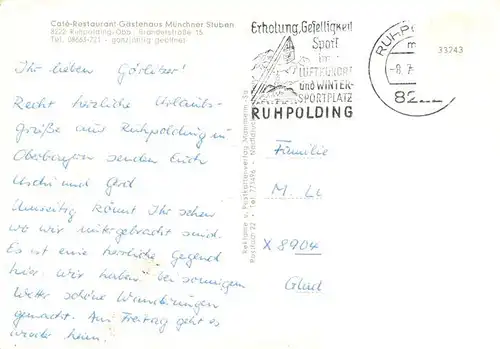 Café-Restaurant-Gästehaus Münchner Stuben
8222 Ruhpolding-Obb. Branderstraße 15
Tel. 08663-721 - ganzjährig geöffnet
Ihr lieben Görlitzer!
Recht herzliche Urlaubs-
grüße aus Ruhpolding in
Oberbayern senden Euch
Uschi und Gerd
Umseitig könnt Ihr sehen
wo wir untergebracht sind.
Es ist eine herrliche Gegend
hier. Wir haben bei sonnigem
Wetter schöne Wanderungen
gemacht. Am Freitag geht es
wieder heim.
Erholung, Geselligkeit
Sport
im
LUFTKURORT
und WINTER-
SPORTPLATZ
RUHPOLDING
RUHPO
-8.7
82
33243
Reklame u. Postkartenverlag Mannheim
Postfach 22 - Tel. 775496
Familie
M.
X 8904